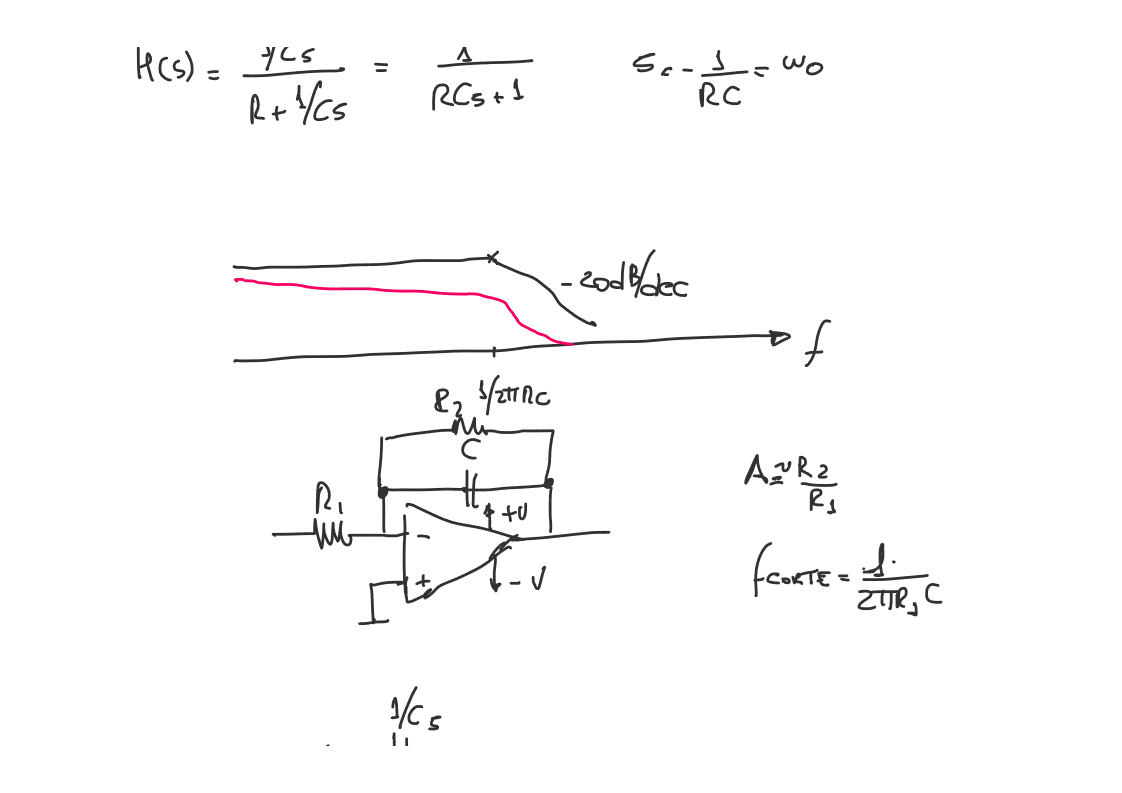 H(s) = 1/Cs / R + 1/Cs = 1 / RCs + 1
s = - 1 / RC = ω0
-20dB/dec
f
R2 1/2πRC
C
A ≃ R2 / R1
R1
+V
-
+
- V
fCORTE = 1 / 2πR1 C
1/Cs